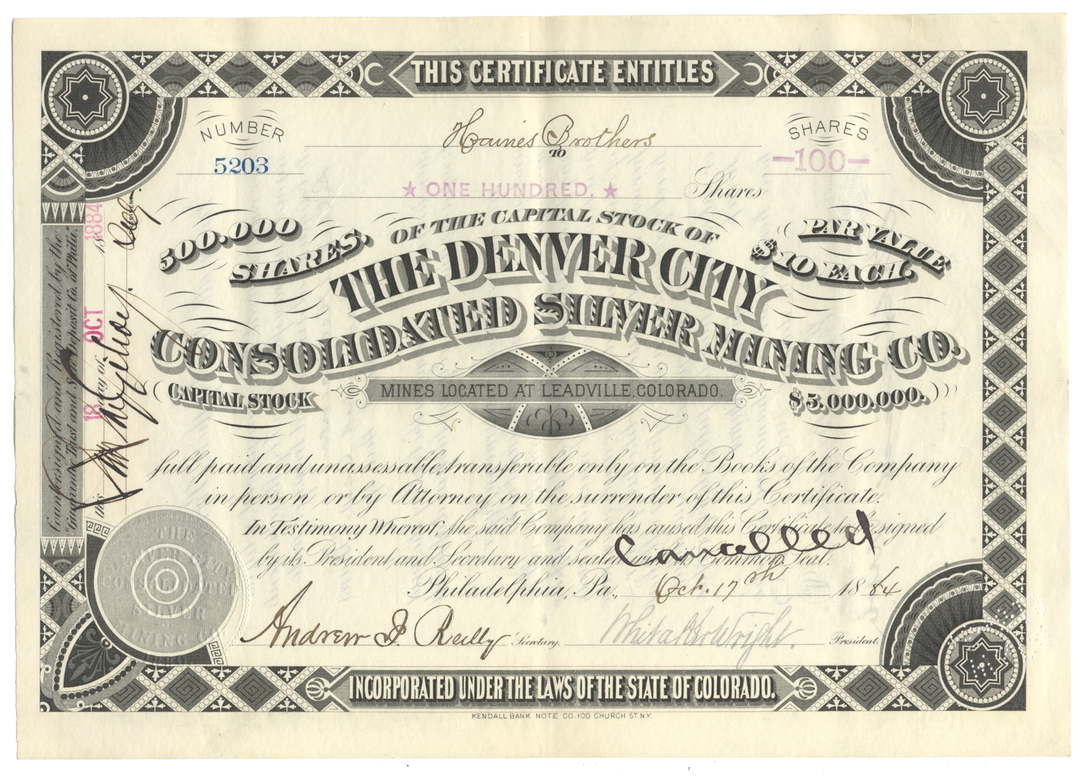 THIS CERTIFICATE ENTITLES
NUMBER
5203
Haines Brothers
TO
SHARES
—100—
★ ONE HUNDRED. ★ Shares
500.000 SHARES.
OF THE CAPITAL STOCK OF
PAR VALUE $10 EACH.
THE DENVER CITY
CONSOLIDATED SILVER MINING CO.
CAPITAL STOCK
MINES LOCATED AT LEADVILLE, COLORADO.
$5.000.000.
full paid and unassessable, transferable only on the Books of the Company
in person or by Attorney on the surrender of this Certificate.
In Testimony Whereof, the said Company has caused this Certificate to be signed
by its President and Secretary and sealed Common Seal.
Cancelled
Philadelphia, Pa., Oct. 17th 1884
Andrew J Reilly Secretary. Whitaker Wright. President.
INCORPORATED UNDER THE LAWS OF THE STATE OF COLORADO.
KENDALL BANK NOTE CO. 100 CHURCH ST. N.Y.
Countersigned and Registered by the
Trust and Deposit Co. of Phila.
this 18 day of OCT 1884
THE
CONSOLIDATED
SILVER
MINING CO